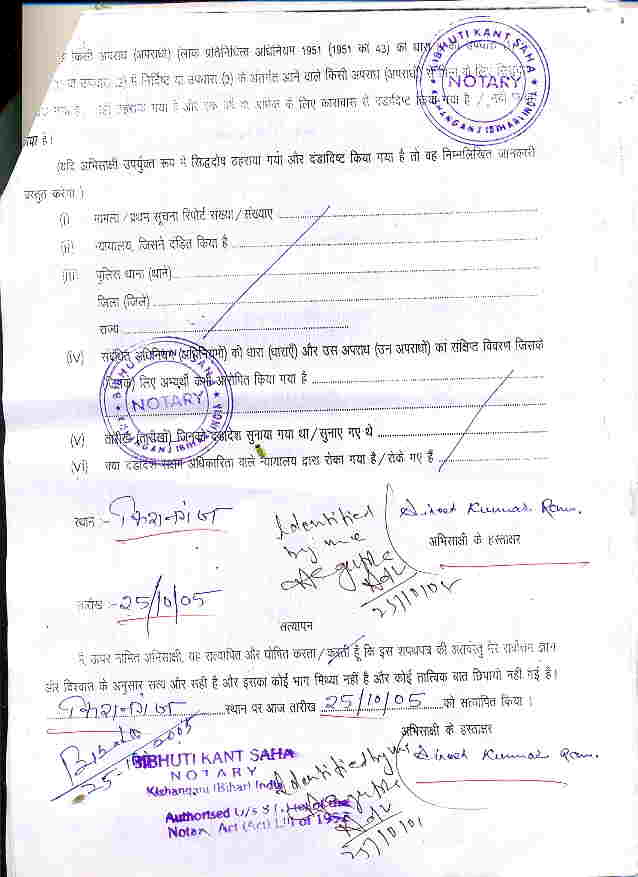 किसी अपराध (अपराधों) (लोक प्रतिनिधित्व अधिनियम 1951 (1951 का 43) की धारा
में निर्दिष्ट या उपधारा (3) के अंतर्गत आने वाले किसी अपराध (अपराधों)
ठहराया गया है और एक वर्ष या अधिक के लिए कारावास से दंडादिष्ट किया गया है /
गया है।
BIBHUTI KANT SAHA
NOTARY
(यदि अभिसाक्षी उपर्युक्त रूप में सिद्धदोष ठहराया गया और दंडादिष्ट किया गया है तो वह निम्नलिखित जानकारी
प्रस्तुत करेगा )
(i) मामला / प्रथम सूचना रिपोर्ट संख्या / संख्याएं
(ii) न्यायालय, जिसने दंडित किया है
(iii) पुलिस थाना (थाने)
जिला (जिले)
राज्य
(iv) संबंधित अधिनियम (अधिनियमों) की धारा (धाराएँ) और उस अपराध (उन अपराधों) का संक्षिप्त विवरण जिसके
लिए अभ्यर्थी को आरोपित किया गया है
BIBHUTI KANT SAHA
NOTARY
(v) तारीख (तारीखों) जिनको दंडादेश सुनाया गया था / सुनाए गए थे
(vi) क्या दंडादेश सक्षम अधिकारिता वाले न्यायालय द्वारा रोका गया है / रोके गए हैं
स्थान :- किशनगंज
Identified
by me
Adv
25/10/05
Kumar Ram.
अभिसाक्षी के हस्ताक्षर
तारीख :- 25/10/05
सत्यापन
मैं, ऊपर नामित अभिसाक्षी, यह सत्यापित और घोषित करता / करती हूँ कि इस शपथपत्र की अंतर्वस्तु मेरे सर्वोत्तम ज्ञान
और विश्वास के अनुसार सत्य और सही है और इसका कोई भाग मिथ्या नहीं है और कोई तात्विक बात छिपायी नहीं गई है।
किशनगंज स्थान पर आज तारीख 25/10/05 को सत्यापित किया।
अभिसाक्षी के हस्ताक्षर
Kumar Ram.
BIBHUTI KANT SAHA
NOTARY
Kishanganj (Bihar) India
Authorised U/s 8
Notary Act
Identified by me
Adv